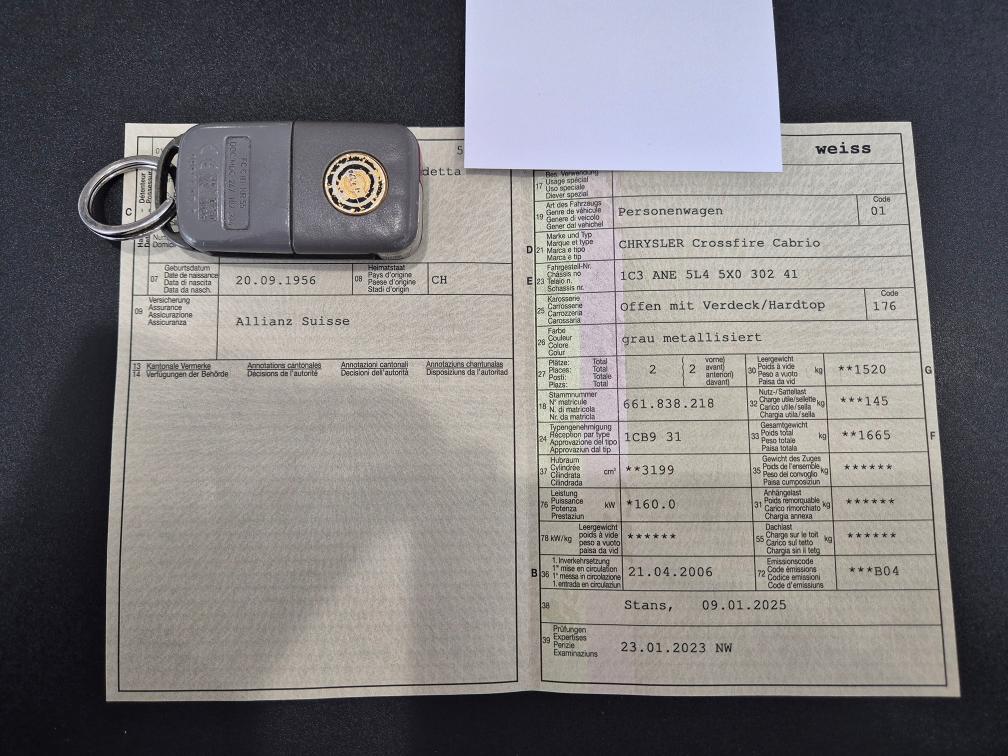 weiss
detta
17 Usage spécial
Uso speciale
Diever spezial
C
19 Art des Fahrzeugs Personenwagen Code
Genre de véhicule 01
Genere di veicolo
Gener dal vehichel
D 21 Marke und Typ CHRYSLER Crossfire Cabrio
Marque et type
Marca e tipo
Marca e tip
E 23 Fahrgestell-Nr. 1C3 ANE 5L4 5X0 302 41
Châssis no
Telaio n.
Schassis nr.
07 Geburtsdatum 20.09.1956 08 Heimatstaat CH
Date de naissance Pays d'origine
Data di nascita Paese d'origine
Data da nasch. Stadi d'origin
09 Versicherung Allianz Suisse
Assurance
Assicurazione
Assicuranza
25 Karosserie Offen mit Verdeck/Hardtop Code
Carrosserie 176
Carrozzeria
Carossaria
26 Farbe grau metallisiert
Couleur
Colore
Colur
13 Kantonale Vermerke Annotations cantonales Annotazioni cantonali Annotaziuns chantunalas
14 Verfügungen der Behörde Décisions de l'autorité Decisioni dell'autorità Disposiziuns da l'autoritad
27 Plätze: Total 2 vorne) 2
Places: Total avant)
Posti: Totale anteriori)
Plazs: Total davant)
30 Leergewicht kg **1520 G
Poids à vide
Peso a vuoto
Paisa da vid
18 Stammnummer 661.838.218
N° matricule
N. di matricola
Nr. da matricla
32 Nutz-/Sattellast kg ***145
Charge utile/sellette
Carico utile/sella
Chargia utila/sella
24 Typengenehmigung 1CB9 31
Réception par type
Approvazione del tipo
Approvaziun dal tip
33 Gesamtgewicht kg **1665 F
Poids total
Peso totale
Paisa totala
37 Hubraum cm³ **3199
Cylindrée
Cilindrata
Cilindrada
35 Gewicht des Zuges kg ******
Poids de l'ensemble
Peso del convoglio
Paisa cumposiziun
76 Leistung kW *160.0
Puissance
Potenza
Prestaziun
31 Anhängelast kg ******
Poids remorquable
Carico rimorchiato
Chargia annexa
78 kW/kg Leergewicht ******
poids à vide
peso a vuoto
paisa da vid
55 Dachlast kg ******
Charge sur le toit
Carico sul tetto
Chargia sin il tetg
B 36 1. Inverkehrsetzung 21.04.2006
1re mise en circulation
1a messa in circolazione
1. entrada en circulaziun
72 Emissionscode ***B04
Code émissions
Codice emissioni
Code d'emissiuns
38 Stans, 09.01.2025
39 Prüfungen 23.01.2023 NW
Expertises
Perizie
Examinaziuns